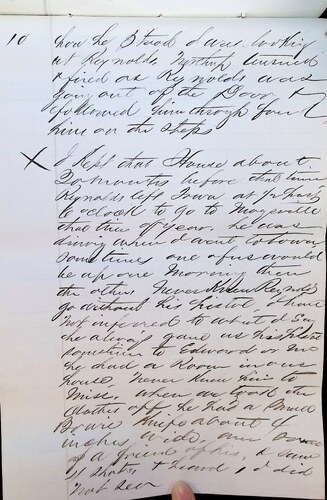 10 how he stood I was looking
at Reynolds Northup turned
& fired as Reynolds was
going out of the Door &
followed him through found
him on the steps
X I kept that House about
months before that time
Reynolds left town at
o'clock to go to Maysville
that time of year. he was
when I went to town
sometimes one of us would
be up one Morning then
the other Never Knew Reynolds
go without his pistol. I have
not inferred to what I say
he always gave us his pistol
sometimes to Edward or me
he had a Room in our
house, Never knew him to
Miss. when we took the
clothes off he had a
Bowie Knife about 4
inches wide,
of a friend of his, &
shots & heard, I did
not see